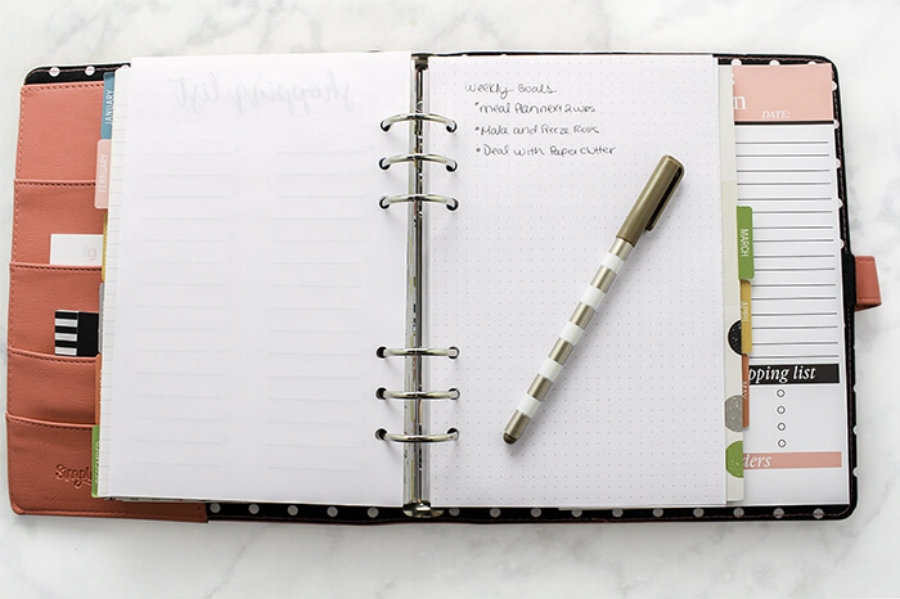 JANUARY
FEBRUARY
shopping list
Simpl
Weekly Goals
*meal Plan next 2 wks
*Make and Freeze Rolls
*Deal with Paper clutter
n
DATE:
MARCH
APRIL
MAY
pping list
ders